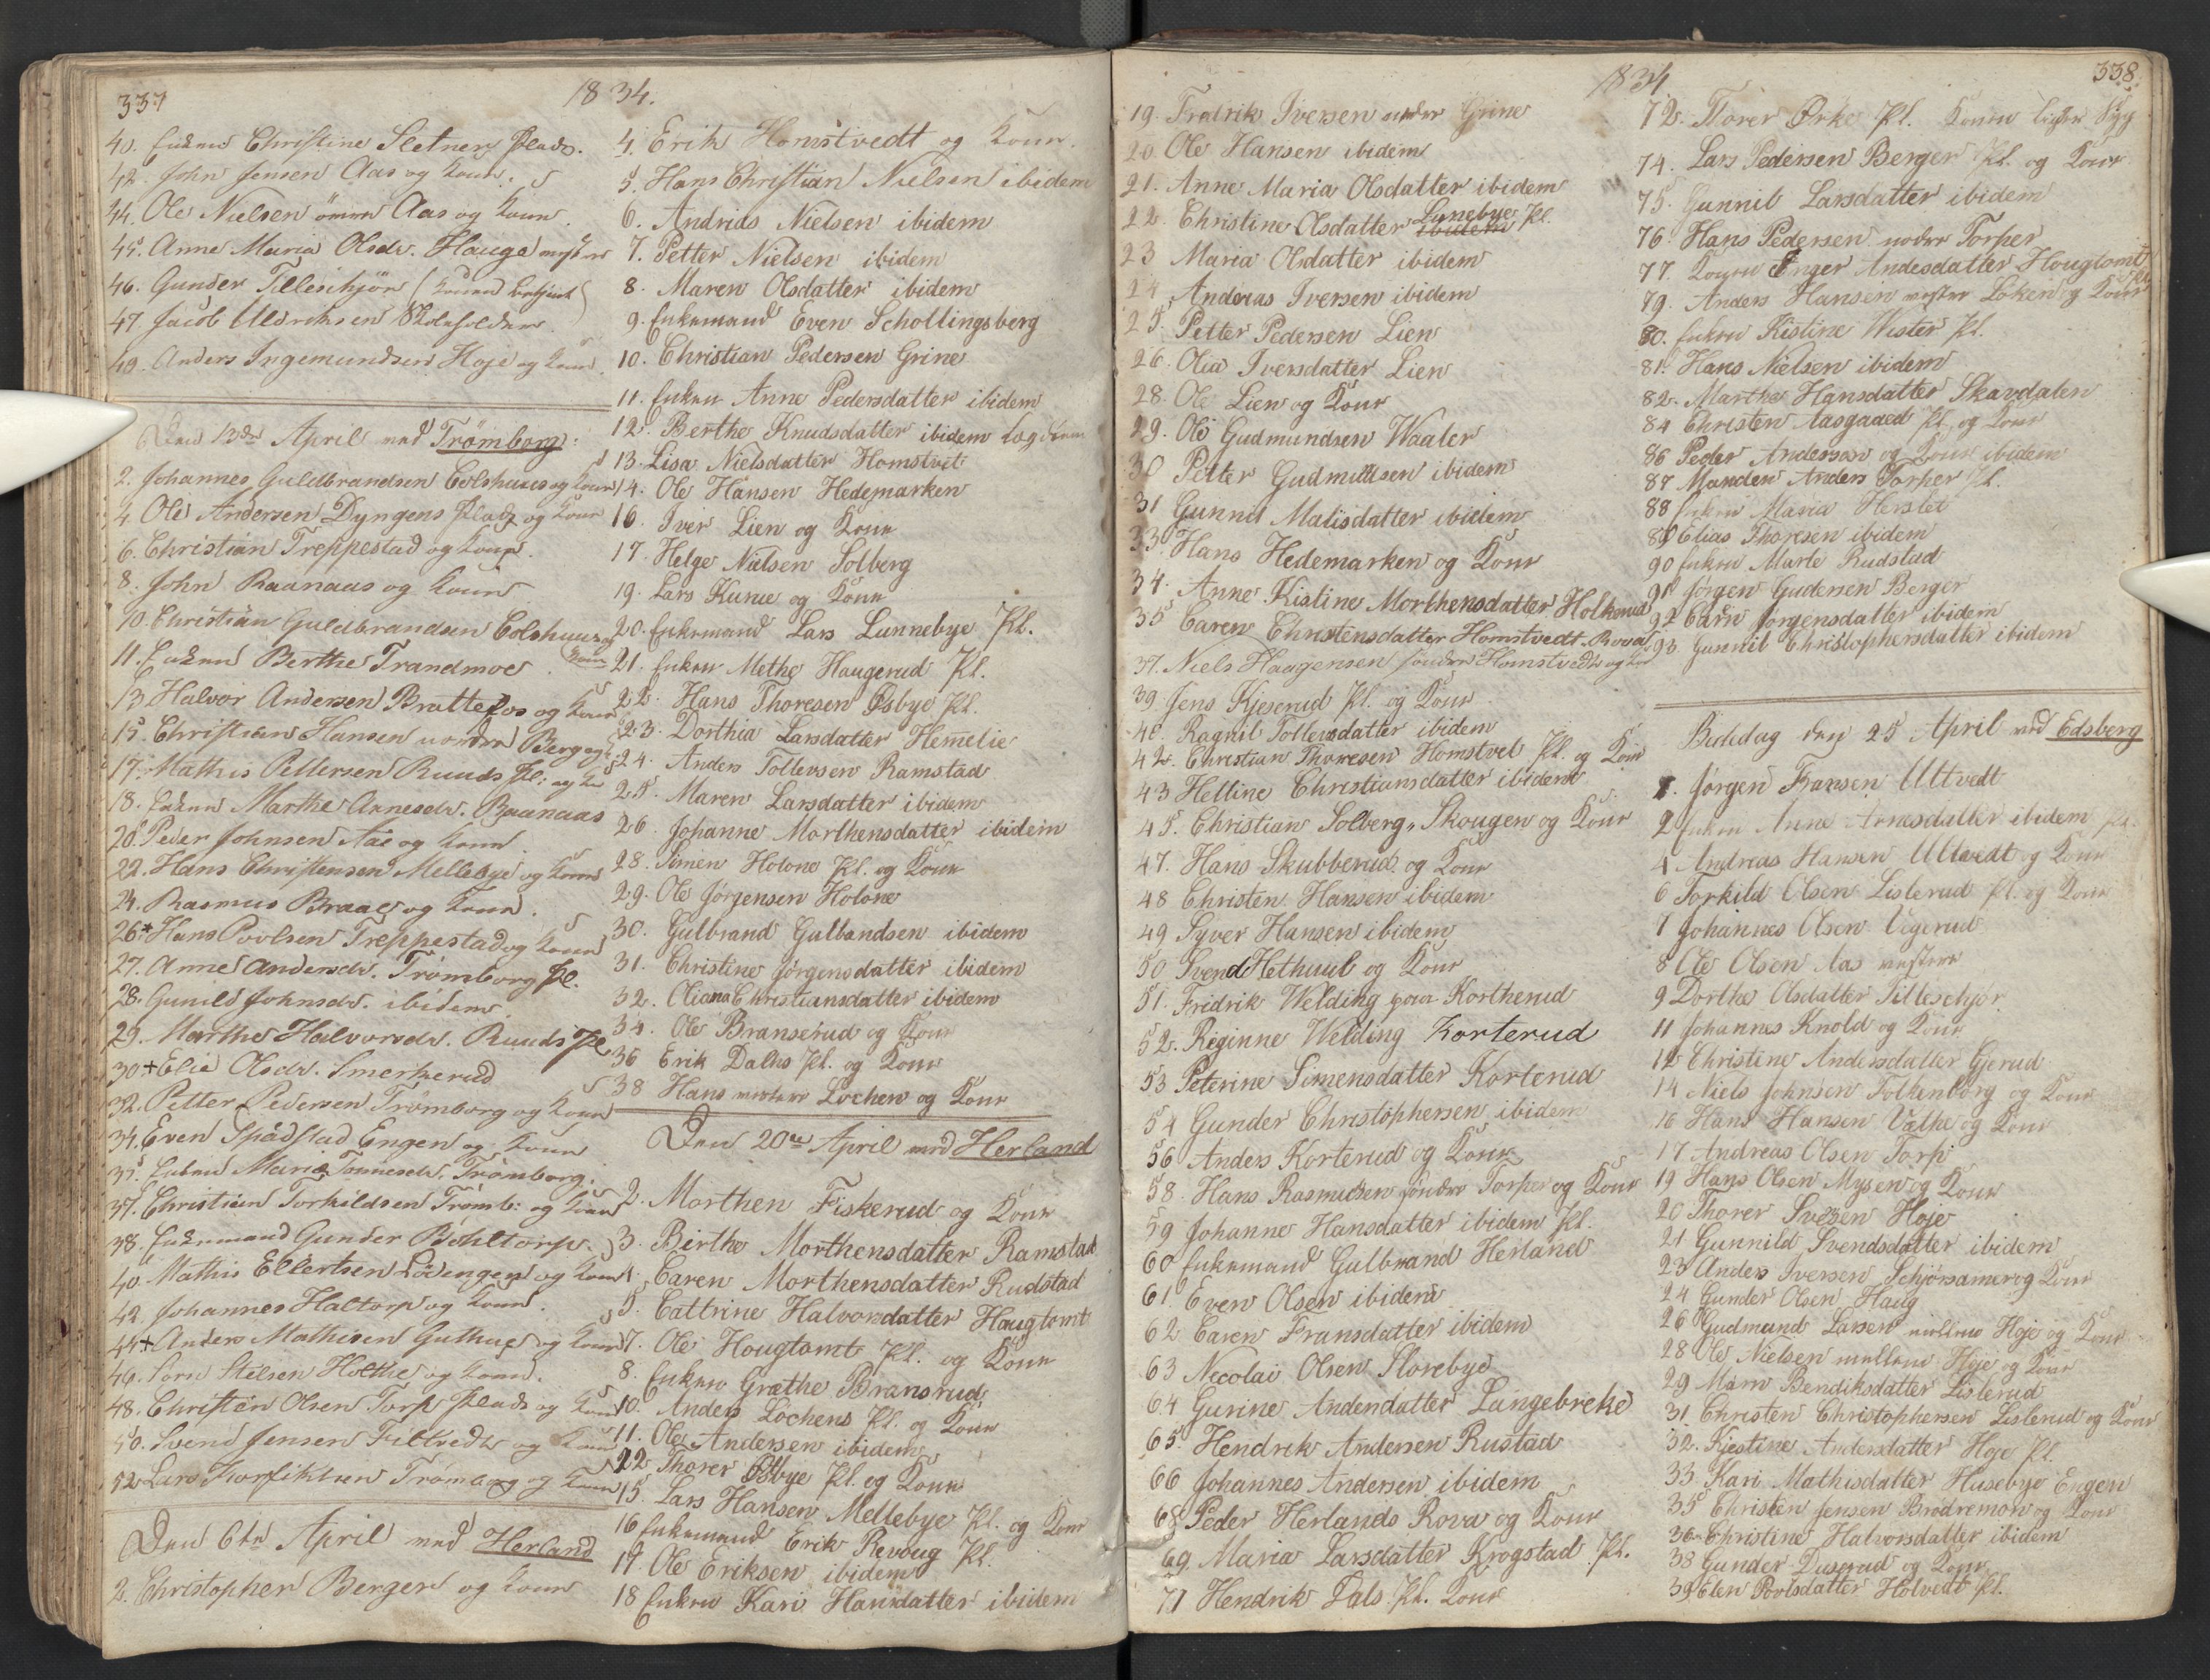 337
1834.
40. Enken Christine Sletner Plads.
42. John Jensen Aas og Kone.
44. Ole Nielsen Aas og Kone.
45. Anne Maria Olsdr. Hauga
46. Gunder Tilleschjör (Konen betjent)
47. Jacob Uldriksen Skoleholder
49. Anders Ingemundsen Hoje og Kone
Den 13de April ved Trömborg:
2. Johannes Guldbrandsen Colshuus og Kone
4 Ole Andersen Dyngens Plads og Kone
6. Christian Treppestad og Kone.
8. John Raanaas og Kone
10. Christian Guldbrandsen Colshuus og Kone
11. Enken Berthe Trandmoe
13. Halvor Andersen Brattefos og Kone
15. Christian Hansen nordre Berg og
17. Mathis Pettersen Ruuds Pl: og
18. Enken Marthe Arnesdr. Raanaas
20. Peder Johnsen Aae og Kone
22. Hans Christensen Mellebye og Kone
24. Rasmus Braae og Kone.
26+ Hans Povlsen Treppestad og Kone
27. Anne Andersdr. Trömborg Pl.
28. Gunild Johnsdr. ibidem
29. Marthe Halvorsdr. Ruuds Pl
30+ Elie Olsdr. Smerkerud
32. Petter Pedersen Trömborg og Kone
34. Even Spädstad Engen og Kone
35. Enken Maria Trömborg.
37. Christian Torkildsen Trömb: og Kone
38. Enkemand Gunder Böhltorp.
40. Mathis Ellertsen Lövengen og Kone
42. Johannes Haltorp og Kone.
44+ Anders Mathisen Guthue og Kone
46. Sorn Stelsen Holthe og Kone.
48. Christian Olsen Torp Plads og Kone
50. Svend Jensen Filtvedt og Kone
52 Lars Trömborg og Kone
Den 6te April ved Herland
2. Christopher Berger og Kone
4. Erik Homstvedt og Kone.
5. Hans Christian Nielsen ibidem
6. Andrias Nielsen ibidem
7. Petter Nielsen ibidem
8. Maren Olsdatter ibidem
9. Enkemand Even Schollingsberg
10. Christian Pedersen Grine
11. Enken Anne Pedersdatter ibidem
12. Berthe Knudsdatter ibidem
13. Lisa Nielsdatter Homstvet
14. Ole Hansen Hedemarken
16. Iver Lien og Kone
17. Helge Nielsen Solberg
19. Lars Kunie og Kone
20. Enkemand Lars Lunnebye Pl.
21. Enken Methe Haugerud Pl.
22. Hans Thoresen Østbye Pl.
23. Dorthia Larsdatter Hemelie
24. Anders Tollevsen Ramstad
25. Maren Larsdatter ibidem
26. Johanne Morthensdatter ibidem
28. Simen Holone Pl. og Kone
29. Ole Jörgensen Holone
30. Gulbrand Gulbandsen ibidem
31. Christine Jörgensdatter ibidem
32. Oliana Christiansdatter ibidem
34. Ole Branserud og Kone
36 Erik Dalhs Pl. og Kone
38 Hans Lochen og Kone
Den 20de April ved Herland
2. Morthen Fiskerud og Kone
3. Birthe Morthensdatter Ramstad
4. Caren Morthensdatter Rudstad
5. Cattrine Halvorsdatter Haugtomt
7. Ole Hougtomt Pl. og Kone
8. Enken Grathe Bransrud
10. Anders Lochens Pl. og Kone
11. Ole Andersen ibidem
22 Thorer Østbye Pl. og Kone
15. Lars Hansen Mellebye Pl. og Kone
16 Enkemand Erik Revoug Pl.
17 Ole Eriksen ibidem
18 Enken Kari Hansdatter ibidem
1834
338.
19. Fredrik Iversen Grine
20. Ole Hansen ibidem
21. Anne Maria Olsdatter ibidem
22. Christine Olsdatter ibidem Lunebye Pl.
23 Maria Olsdatter ibidem
24. Andreas Iversen ibidem
25. Petter Pedersen Lien
26. Olia Iversdatter Lien
28. Ole Lien og Kone
29. Ole Gudmundsen Waaler
30 Petter Gudmundsen ibidem
31 Gunnil Malisdatter ibidem
33 Hans Hedemarken og Kone
34. Anne Kistine Morthensdatter Holkerud
35 Caren Christensdatter Homstvedt Rova
37. Niels Haagensen söndre Homstvedt og Kone
39. Jens Kjeserud Pl. og Kone
40. Ragnil Tollevsdatter ibidem
42. Christian Thoresen Homstvet Pl. og Kone
43 Helline Christiansdatter ibidem
45. Christian Solberg Skougen og Kone
47. Hans Skubberud og Kone
48 Christen Hansen ibidem
49 Syver Hansen ibidem
50 Svend Hethuul og Kone
51. Fridrik Welding Kortherud
52. Reginne Welding Korterud
53 Peterine Simensdatter Korterud
54 Gunder Christophersen ibidem
56 Anders Korterud og Kone
58. Hans Rasmusen söndre Torper og Kone
59 Johanne Hansdatter ibidem Pl.
60 Enkemand Gulbrand Herland
61. Even Olsen ibidem
62 Caren Fransdatter ibidem
63 Necolai Olsen Slorebye
64 Gurine Andersdatter Langebreke
65. Hendrik Andersen Rustad
66 Johannes Andersen ibidem
68 Peder Herlands Rova og Kone
69 Maria Larsdatter Krogstad Pl.
71 Hendrik Dals Pl. Kone
72. Thorer Örke Pl. Konen ligger Syg
74. Lars Pedersen Berger Pl. og Kone
75. Gunnil Larsdatter ibidem
76. Hans Pedersen nordre Torper
77. Konen Inger Andersdatter Hougtomt Pl
79. Anders Hansen Loken og Kone
80. Enken Kistine Wister Pl.
81. Hans Nielsen ibidem
82. Marthe Hansdatter Skavdalen
84 Christen Aasgaaed Pl. og Kone
86 Peder Anderson og Kone ibidem
87 Manden Anders Torper Pl.
88 Enken Maria Herslet
89 Elias Thoresen ibidem
90 Enken Marte Rudstad
91 Jörgen Gudersen Berger
92 Carn Jörgensdatter ibidem
93. Gunnil Christophersdatter ibidem
Bededag den 25 April ved Edsberg
1. Jörgen Fransen Ultvedt
2 Enken Anne Arnesdatter ibidem Pl.
4 Andreas Hansen Ultvedt og Kone
6 Torkild Olsen Lislerud Pl. og Kone
7 Johannes Olsen Vegerud
8 Ole Olsen Aas
9 Dorthe Olsdatter Tilleschjör
11 Johannes Knold og Kone
12 Christine Andersdatter Gjerud
14 Niels Johnsen Folkenborg og Kone
16 Hans Hansen Vathe og Kone
17 Andreas Olsen Torp
19 Hans Olsen Mysen og Kone
20 Thorer Svesen Hoje
21 Gunnild Svendsdatter ibidem
23 Anders Iversen Schjörsamer og Kone
24 Gunder Olsen Haug
26 Gudmund Larsen mellem Hoje og Kone
28 Ole Nielsen mellem Hoje og Kone
29 Maren Bendiksdatter Lislerud
31. Christen Christophersen Lislerud og Kone
32. Kjestine Andersdatter Hoje Pl.
33 Kari Mathisdatter Husebye Engen
35 Christen Jensen Brodremon og Kone
36 Christine Halvorsdatter ibidem
38 Gunder Duserud og Kone
39 Elen Povlsdatter Holvedt Pl.